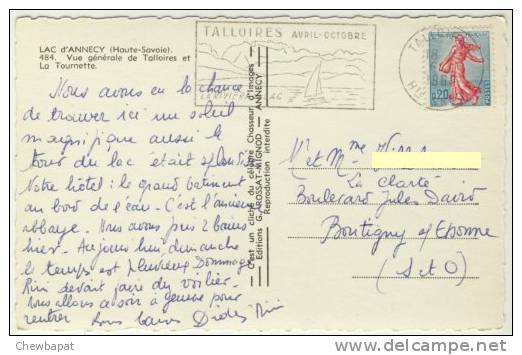 LAC d'ANNECY (Haute-Savoie).
484. Vue générale de Talloires et
La Tournette.
TALLOIRES AVRIL-OCTOBRE
0,20
Nous avons eu la chance
de trouver ici un soleil
magnifique aussi le
tour du lac était splendide
Notre hôtel : le grand batiment
au bord de l'eau. C'est l'ancienne
abbaye. Nous avons pris 2 bains
hier. Aujourd'hui dimanche
le temps est pluvieux Dommage
Rini devait faire du voilier.
Nous allons ce soir à Genève pour
rentrer. Bons baisers
C'est un cliché du célèbre Chasseur d'Images
Editions G. AROSSAT-MIGNOD - ANNECY
Reproduction interdite
M et Mme
La Clarté
Boulevard Jules David
Boutigny s/ Essonne
(S et O)
Chewbapat
delcampe.net